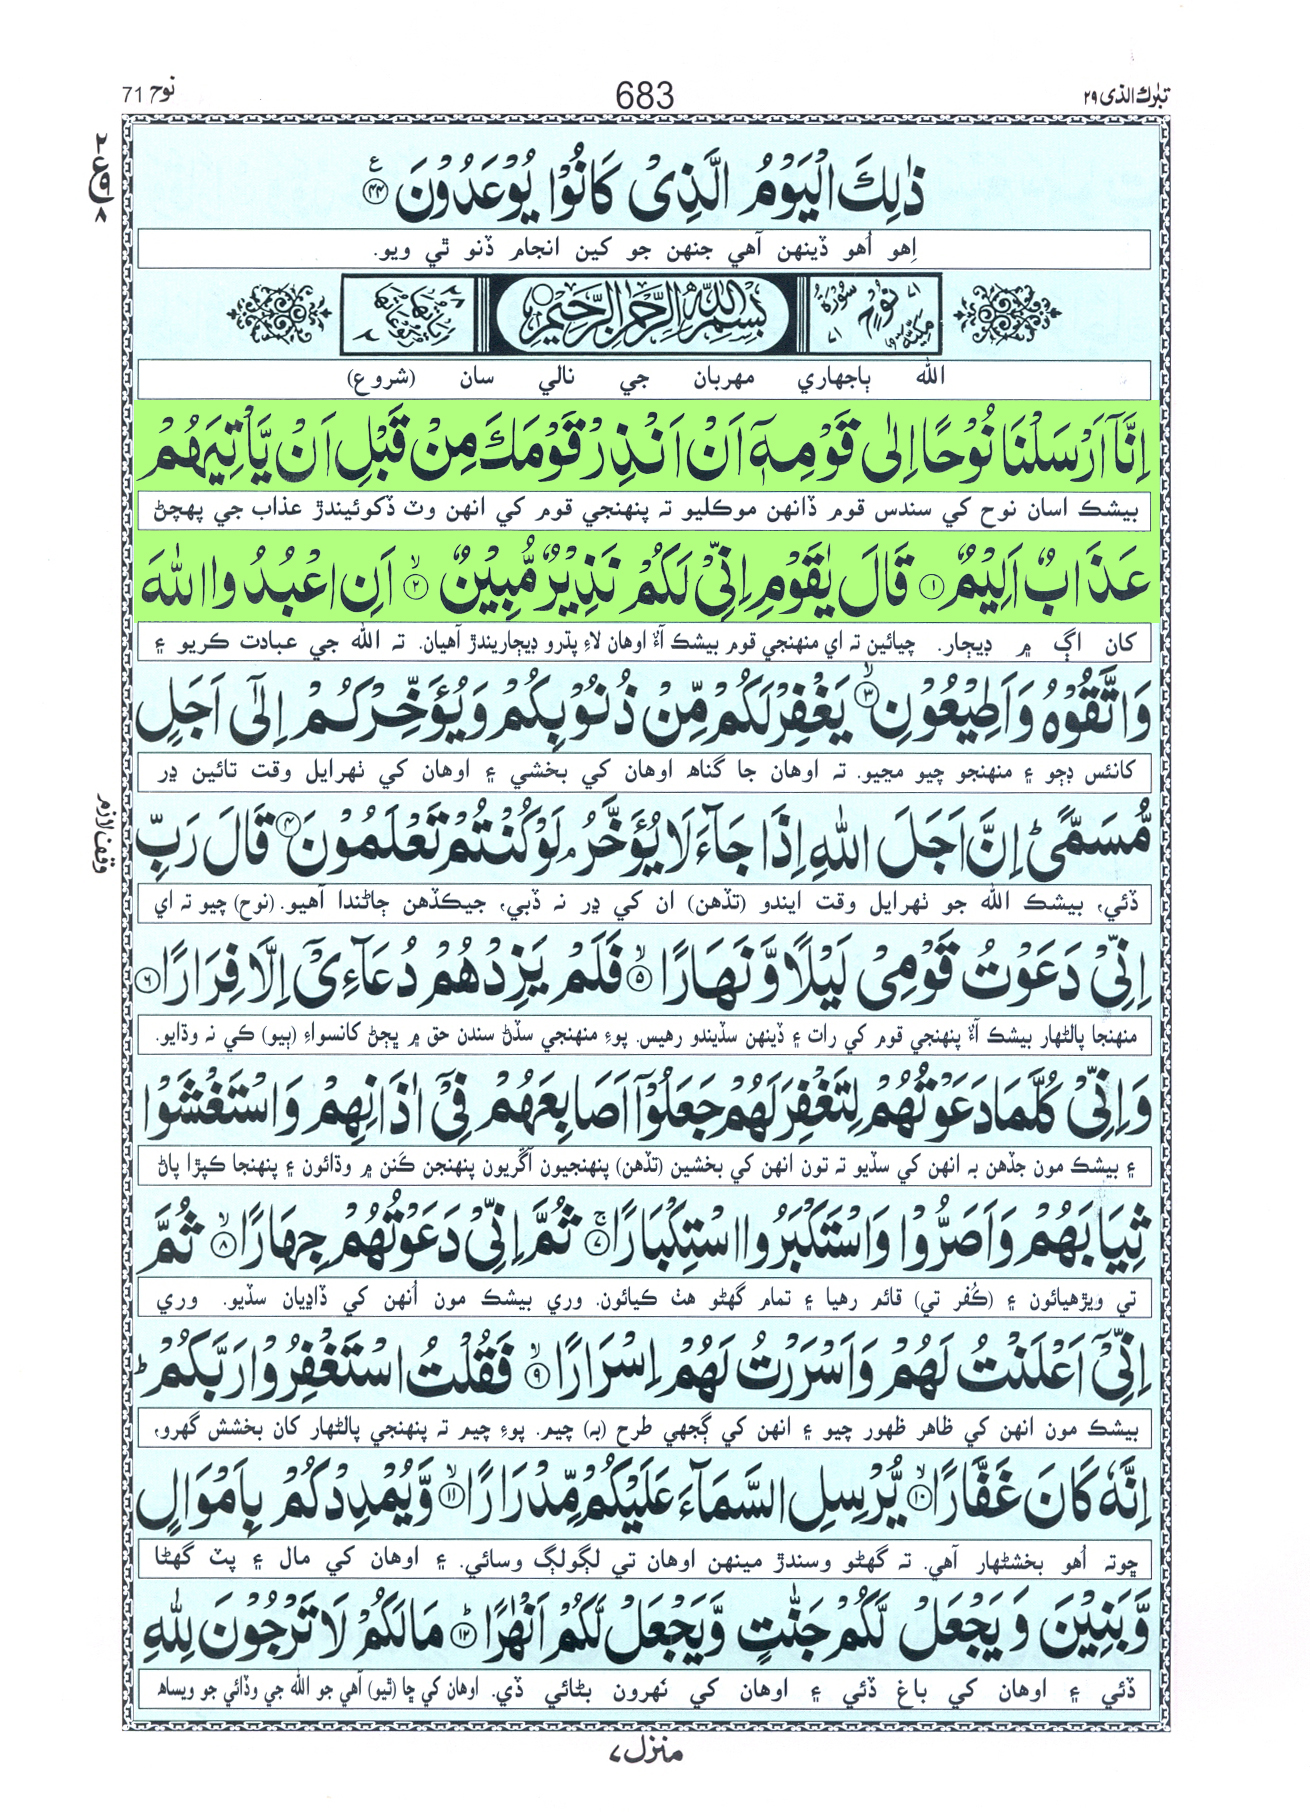 تبٰرك الذی ٢٩
683
نوح 71
ذٰلِكَ الْيَوْمُ الَّذِىْ كَانُوْا يُوْعَدُوْنَ ﴿۴۴﴾ ع
اِهو اُهو ڏينهن آهي جنهن جو کين انجام ڏنو ٿي ويو.
بِسْمِ اللّٰهِ الرَّحْمٰنِ الرَّحِيْمِ
سُوْرَةُ نُوْحٍ مَكِّيَّةٌ ٧١
الله ٻاجهاري مهربان جي نالي سان (شروع)
اِنَّآ اَرْسَلْنَا نُوْحًا اِلٰى قَوْمِهٖٓ اَنْ اَنْذِرْ قَوْمَكَ مِنْ قَبْلِ اَنْ يَّاْتِيَهُمْ
بيشڪ اسان نوح کي سندس قوم ڏانهن موڪليو ته پنهنجي قوم کي انهن وٽ ڏکوئيندڙ عذاب جي پهچڻ
عَذَابٌ اَلِيْمٌ ﴿۱﴾ قَالَ يٰقَوْمِ اِنِّىْ لَكُمْ نَذِيْرٌ مُّبِيْنٌ ﴿۲﴾ۙ اَنِ اعْبُدُوا اللّٰهَ
کان اڳ ۾ ڊيڄار. چيائين ته اي منهنجي قوم بيشڪ آءٌ اوهان لاءِ پڌرو ڊيڄاريندڙ آهيان. ته الله جي عبادت ڪريو ۽
وَاتَّقُوْهُ وَاَطِيْعُوْنِ ﴿۳﴾ۙ يَغْفِرْ لَكُمْ مِّنْ ذُنُوْبِكُمْ وَيُؤَخِّرْكُمْ اِلٰٓى اَجَلٍ
کانئس ڊڄو ۽ منهنجو چيو مڃيو. ته اوهان جا گناه اوهان کي بخشي ۽ اوهان کي ٺهرايل وقت تائين ڍر
مُّسَمًّىؕ اِنَّ اَجَلَ اللّٰهِ اِذَا جَآءَ لَا يُؤَخَّرُۘ لَوْ كُنْتُمْ تَعْلَمُوْنَ ﴿۴﴾ قَالَ رَبِّ
ڏئي، بيشڪ الله جو ٺهرايل وقت ايندو (تڏهن) ان کي ڍر نه ڏبي، جيڪڏهن ڄاڻندا آهيو. (نوح) چيو ته اي
وقف لازم
اِنِّىْ دَعَوْتُ قَوْمِىْ لَيْلًا وَّنَهَارًا ﴿۵﴾ۙ فَلَمْ يَزِدْهُمْ دُعَآءِىْٓ اِلَّا فِرَارًا ﴿۶﴾
منهنجا پالڻهار بيشڪ آءٌ پنهنجي قوم کي رات ۽ ڏينهن سڏيندو رهيس. پوءِ منهنجي سڏڻ سندن حق ۾ ڀڄڻ کانسواءِ (ٻيو) ڪي نه وڌايو.
وَاِنِّىْ كُلَّمَا دَعَوْتُهُمْ لِتَغْفِرَ لَهُمْ جَعَلُوْٓا اَصَابِعَهُمْ فِىْٓ اٰذَانِهِمْ وَاسْتَغْشَوْا
۽ بيشڪ مون جڏهن به انهن کي سڏيو ته تون انهن کي بخشين (تڏهن) پنهنجيون آڱريون پنهنجن ڪَنن ۾ وڌائون ۽ پنهنجا ڪپڙا پاڻ
ثِيَابَهُمْ وَاَصَرُّوْا وَاسْتَكْبَرُوا اسْتِكْبَارًا ﴿۷﴾ۚ ثُمَّ اِنِّىْ دَعَوْتُهُمْ جِهَارًا ﴿۸﴾ۙ ثُمَّ
تي ويڙهيائون ۽ (ڪُفر تي) قائم رهيا ۽ تمام گهڻو هٺ ڪيائون. وري بيشڪ مون اُنهن کي ڏاڍيان سڏيو. وري
اِنِّىْٓ اَعْلَنْتُ لَهُمْ وَاَسْرَرْتُ لَهُمْ اِسْرَارًا ﴿۹﴾ۙ فَقُلْتُ اسْتَغْفِرُوْا رَبَّكُمْؕ
بيشڪ مون انهن کي ظاهر ظهور چيو ۽ انهن کي ڳجهي طرح (به) چيم. پوءِ چيم ته پنهنجي پالڻهار کان بخشش گهرو،
اِنَّهٗ كَانَ غَفَّارًا ﴿۱۰﴾ۙ يُّرْسِلِ السَّمَآءَ عَلَيْكُمْ مِّدْرَارًا ﴿۱۱﴾ۙ وَّيُمْدِدْكُمْ بِاَمْوَالٍ
ڇوته اُهو بخشڻهار آهي. ته گهڻو وسندڙ مينهن اوهان تي لڳولڳ وسائي. ۽ اوهان کي مال ۽ پٽ گهڻا
وَّبَنِيْنَ وَيَجْعَلْ لَّكُمْ جَنّٰتٍ وَّيَجْعَلْ لَّكُمْ اَنْهٰرًا ﴿۱۲﴾ؕ مَا لَكُمْ لَا تَرْجُوْنَ لِلّٰهِ
ڏئي ۽ اوهان کي باغ ڏئي ۽ اوهان کي نَهرون بڻائي ڏي. اوهان کي ڇا (ٿيو) آهي جو الله جي وڏائي جو ويساه
منزل ٧